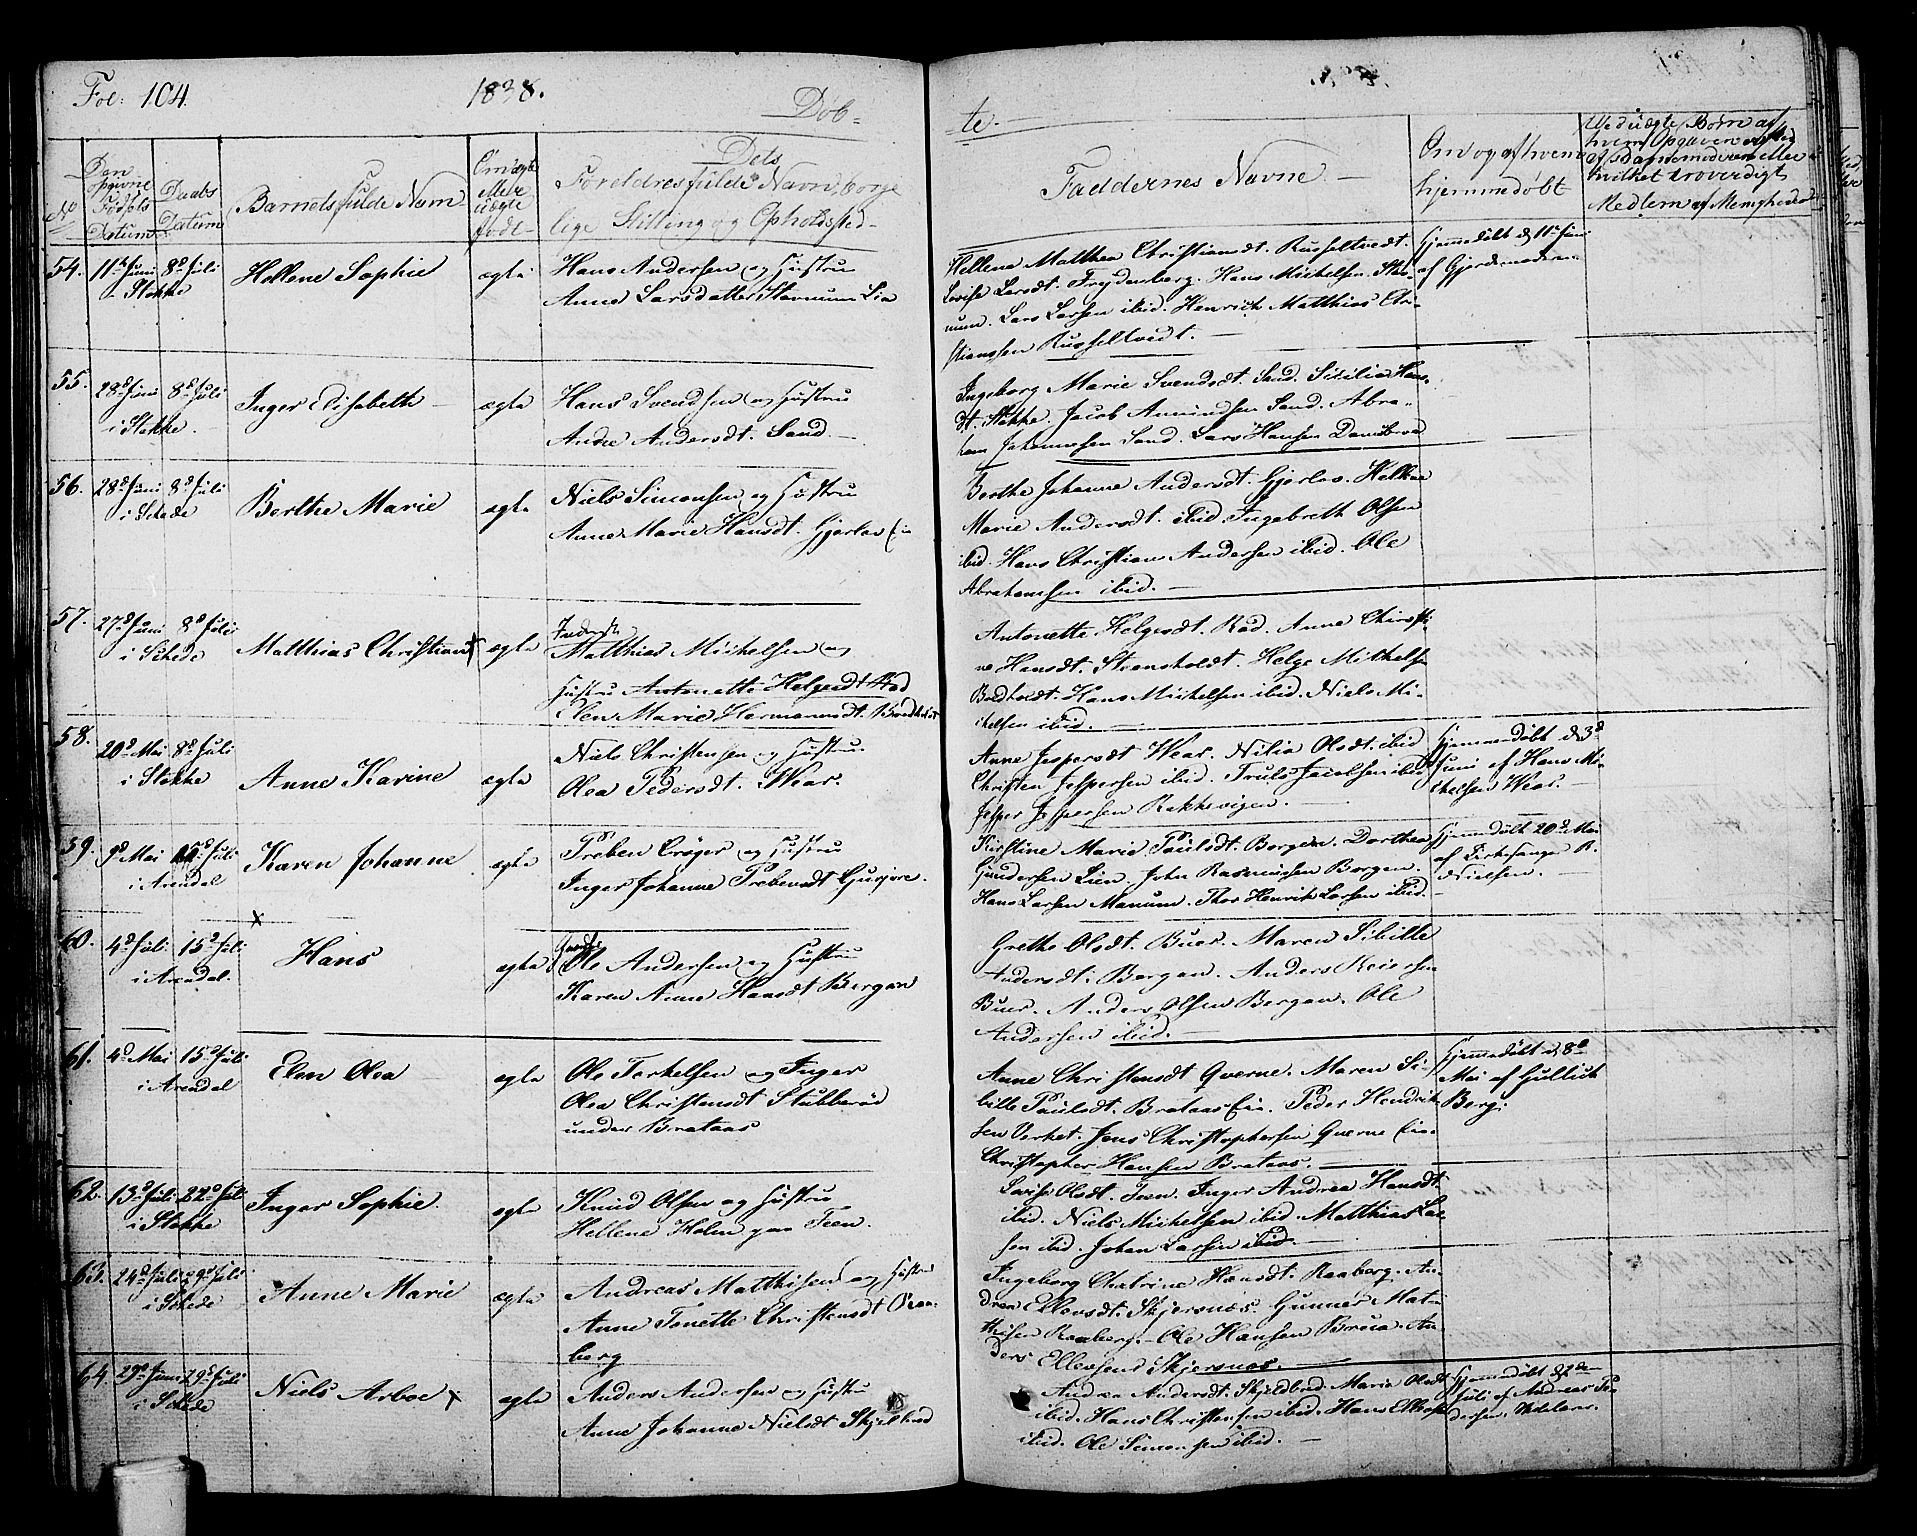 Fol: 104.
1838.
Døb-
te.
No
Den opgivne Fødsels Datum
Daabs Datum
Barnets fulde Navn
Om ægte eller uægte født
Dets Foreldres fulde Navn, borge
lige Stilling og Opholdssted
Faddernes Navne
Om og af hvem
hjemmedøbt
Ved uægte Børn af
hvem Opgaven er
hvilket troverdigt
Medlem af Menigheden
54. 11te Juni 8d Juli Hellene Sophie ægte Hans Andersen og Hustru
i Stokke Anne Larsdatter Stavnum Eie
Hellena Mathea Christiansdt. Russeltvedt.
Lovise Larsdt. Frydenberg. Hans Michelsen Stav-
num. Lars Larsen ibid. Henrich Matthias Chri-
stianssen Russeltvedt.
Hjemmedøbt d 11te Juni
af Gjordemoderen
55. 28d Juni 8d Juli Inger Elisabeth ægte Hans Svendsen og Hustru
i Stokke. Andrea Andersdt. Sand.
Ingeborg Marie Svendsdt. Sand. Sicilia Hans-
dt. Stokke. Jacob Amundsen Sand. Abra-
ham Johannesen Sand. Lars Hansen
56. 28d Juni 8d Juli Berthe Marie ægte Niels Simonsen og Hustru
i Skede Anne Marie Hansdt. Gjerløv Eie
Berthe Johanne Andersdt. Gjerløv. Hellene
Marie Andersdt. ibid. Ingebreth Olsen
ibid. Hans Christian Andersen ibid. Ole
Abrahamsen ibid.
57. 27d Juni 8d Juli Matthias Christian x ægte Matthias Michelsen og
i Skede Hustru Antonette Helgesdt. Rød
Elen Marie Hermansdt.
Antonette Helgesdt. Rød. Anne Christi-
ne Hansdt. Stensholdt. Helge Mikkelsen
Hans Michelsen ibid. Niels Mi-
chelsen ibid.
58. 20d Mai 8d Juli Anne Karine ægte Niels Christensen og Hustru
i Stokke Olea Pedersdt. Wear.
Anne Jespersdt. Wear. Nilia Olsdt. ibid
Christen Jespersen ibid. Truls Jacobsen ibid
Jesper Jespersen Rakkevigen.
Hjemmedøbt d 3d
Juni af Hans Mi-
chelsen Wear.
59. 9d Mai 15d Juli Karen Johanne ægte Preben Crøger og Hustru
i Arendal Inger Johanne Prebensdt
Kirstine Marie Paulsdt. Bergen. Dorthea
Gundersen Lien. John Rasmussen Bergan.
Hans Larsen Manum. Thor Henrik Larsen ibid.
Hjemmedøbt 20d Mai
af Kirkesanger R.
Nielsen.
60. 4d Juli 15d Juli Hans x ægte Ole Andersen og Hustru
i Arendal. Karen Anne Hansdt Bergan
Grethe Olsdt. Buer. Maren Sibille
Andersdt. Bergan. Anders Reiersen
Buer. Anders Olsen Bergan. Ole
Andersen ibid.
61. 4d Mai 15d Juli Elen Olea ægte Ole Torkelsen og Inger
i Arendal Olea Christensdt Stubberød
under Brataas
Anne Christensdt Qverne. Maren Si-
bille Paulsdt. Brataas Eie. Peder Hendrik-
sen Verket. Jens Christophersen Qverne Eie.
Christopher Hansen Brataas.
Hjemmedøbt d 8d
Mai af Gullich
Berg.
62. 13d Juli 22d Juli Inger Sophie. ægte Knud Olsen og Hustru
i Stokke Hellene Holm paa Feen.
Lovise Olsdt. Feen. Inger Andrea Hansdt.
ibid. Niels Michelsen ibid. Matthias Lar-
sen ibid. Johan Larsen ibid.
63. 24d Juli 29d Juli Anne Marie ægte Andreas Matthisen og Hustru
i Skede Anne Tonette Christensdt Raa-
berg
Ingeborg Chatrine Hansdt. Raaberg. An-
drea Ellevsdt. Skjersnæs. Gunner Mat-
thisen Raaberg. Ole Hansen An-
ders Ellevsen Skjersnæs.
64. 29d Juni 29d Juli Niels Arboe x ægte Anders Andersen og Hustru
i Skede Anne Johanne Nielsdt Skjelbred
Andrea Andersdt. Skjelbred. Maria Olsdt
ibid. Hans Christensen ibid. Hans Ellevsen
ibid. Ole Simonsen ibid.
Hjemmedøbt d 2den
Juli af Andreas Pe-
dersen.